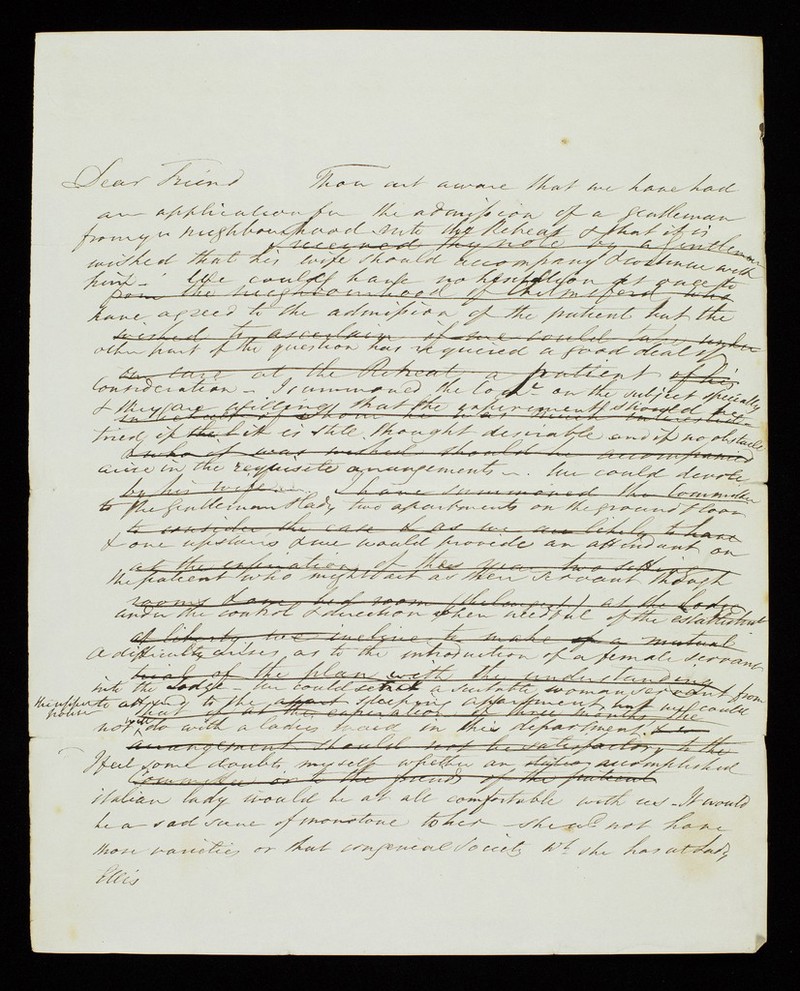 Dear Friend Thou art aware that we have had
an application for the admission of a gentleman
from yr neighbourhood into the Retreat & that it is
I received thy note by a Gentleman
wished that his wife should accompany & continue with
him - We could have no hesitation at once to
from the neighbourhood of Chelmsford who
have agreed to the admission of the patient but the
wished to ascertain if we could take under
other part of the question has required a good deal of
our care at the Retreat a patient of his
consideration - I summoned the Come. on the subject specially
& they are willing that the experiment should be
tried if it is still thought desirable and if no obstacle
& who it was wished should be accompanied
arise in the requisite arrangements - We could devote
by his wife I have summoned the Committee
to the Gentleman & lady two apartments on the ground floor
to consider the case & as we are likely to have
& one upstairs & we would provide an attendant on
at the expiration of this year two sitting
the patient who might act as their servant though
rooms & one bed room at the Lodge
under the control & direction when needful of the establishment
at liberty we incline to make a mutual
A difficulty arises as to the introduction of a female servant
trial of the plan with the understanding
into the Lodge - We could send a suitable woman servant from
the upper house
to attend to the sleeping apartment but we could
that if at the expiration of three months the
not well do with a ladies maid in this department
arrangement should not be satisfactory to the
I feel some doubts myself whether an accomplished
Committee or to the friends of the patient
italian lady would be at all comfortable with us - It would
be a sad scene of monotone to her - she wd. not have
those varieties or that congenial society wh. she has at Lady
Ellis